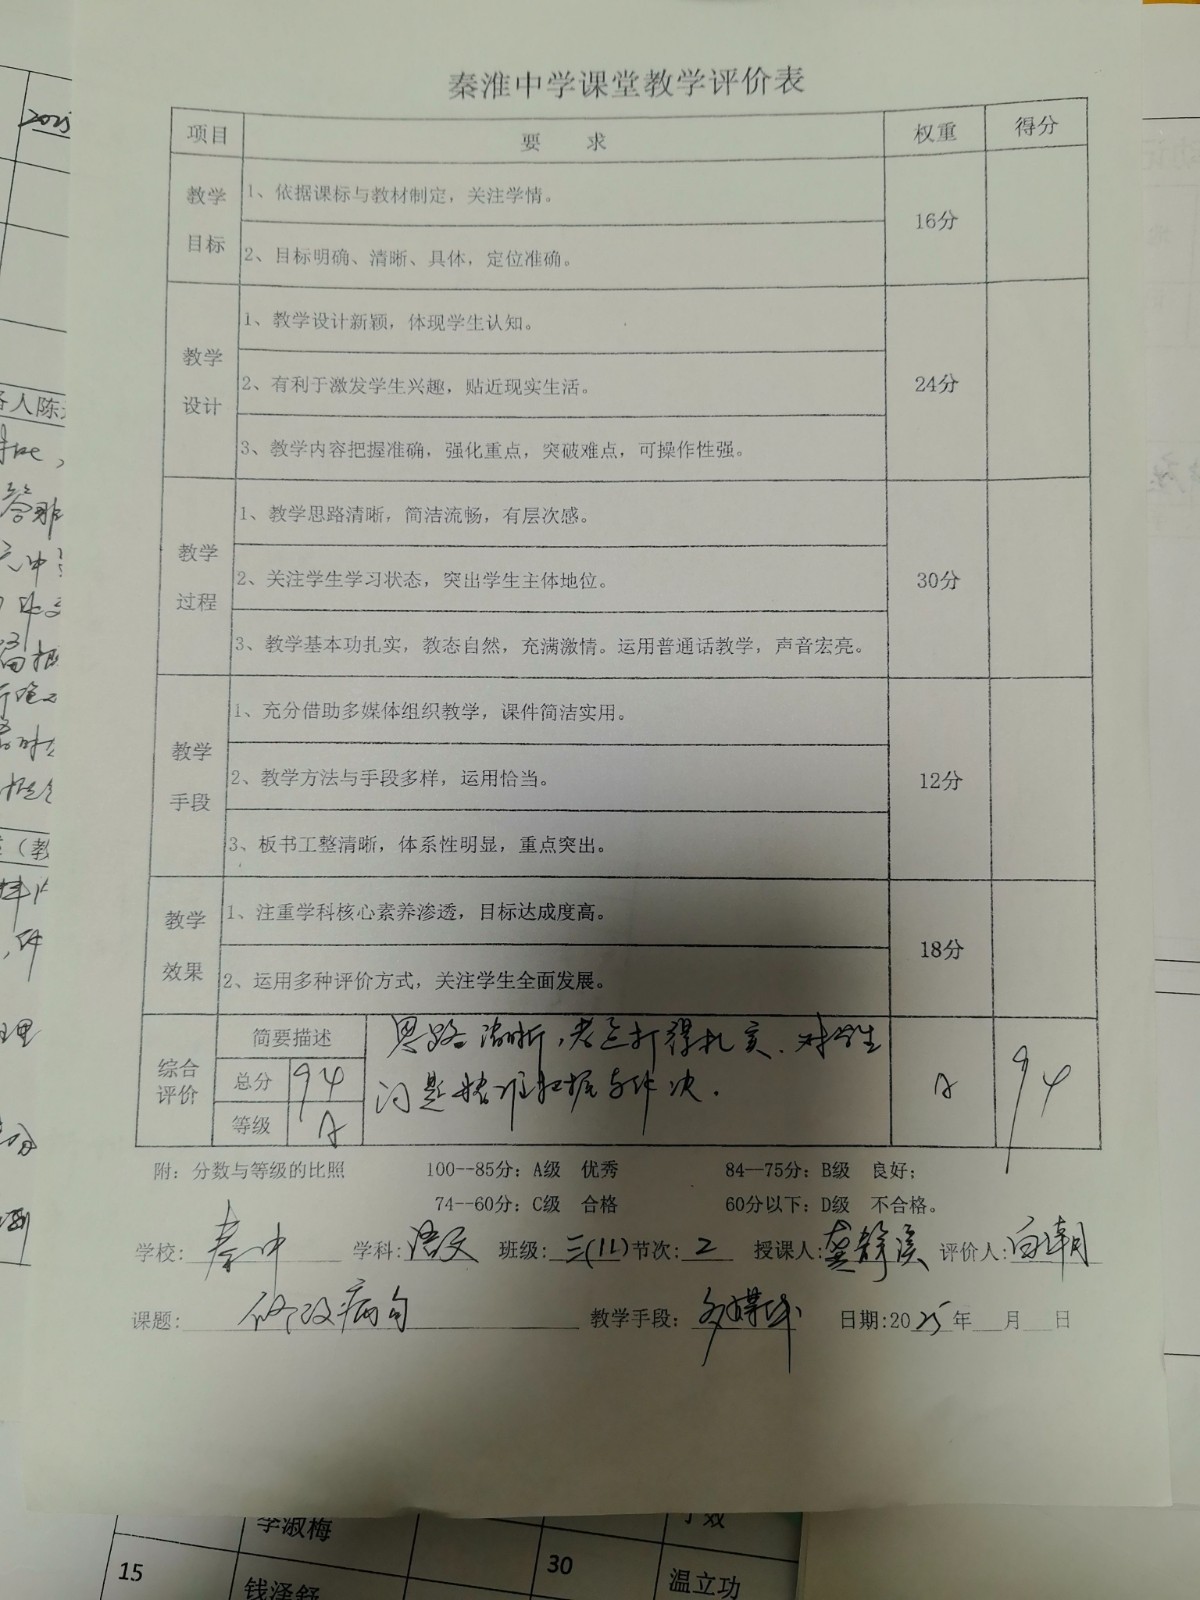 秦淮中学课堂教学评价表
项目 要 求 权重 得分
教学目标 16分
1、依据课标与教材制定，关注学情。
2、目标明确、清晰、具体，定位准确。
教学设计 24分
1、教学设计新颖，体现学生认知。
2、有利于激发学生兴趣，贴近现实生活。
3、教学内容把握准确，强化重点，突破难点，可操作性强。
教学过程 30分
1、教学思路清晰，简洁流畅，有层次感。
2、关注学生学习状态，突出学生主体地位。
3、教学基本功扎实，教态自然，充满激情。运用普通话教学，声音宏亮。
教学手段 12分
1、充分借助多媒体组织教学，课件简洁实用。
2、教学方法与手段多样，运用恰当。
3、板书工整清晰，体系性明显，重点突出。
教学效果 18分
1、注重学科核心素养渗透，目标达成度高。
2、运用多种评价方式，关注学生全面发展。
综合评价 简要描述 思路清晰，打得扎实．对学生
总分 94 问题 A 94
等级 A
附：分数与等级的比照 100--85分：A级 优秀 84—75分：B级 良好；
74--60分：C级 合格 60分以下：D级 不合格。
学校：秦中 学科：语文 班级：三(12) 节次：2 授课人： 评价人：
课题：修改病句 教学手段：多媒体 日期：2025年 月 日
2025
李淑梅
15 钱泽舒 30 温立功